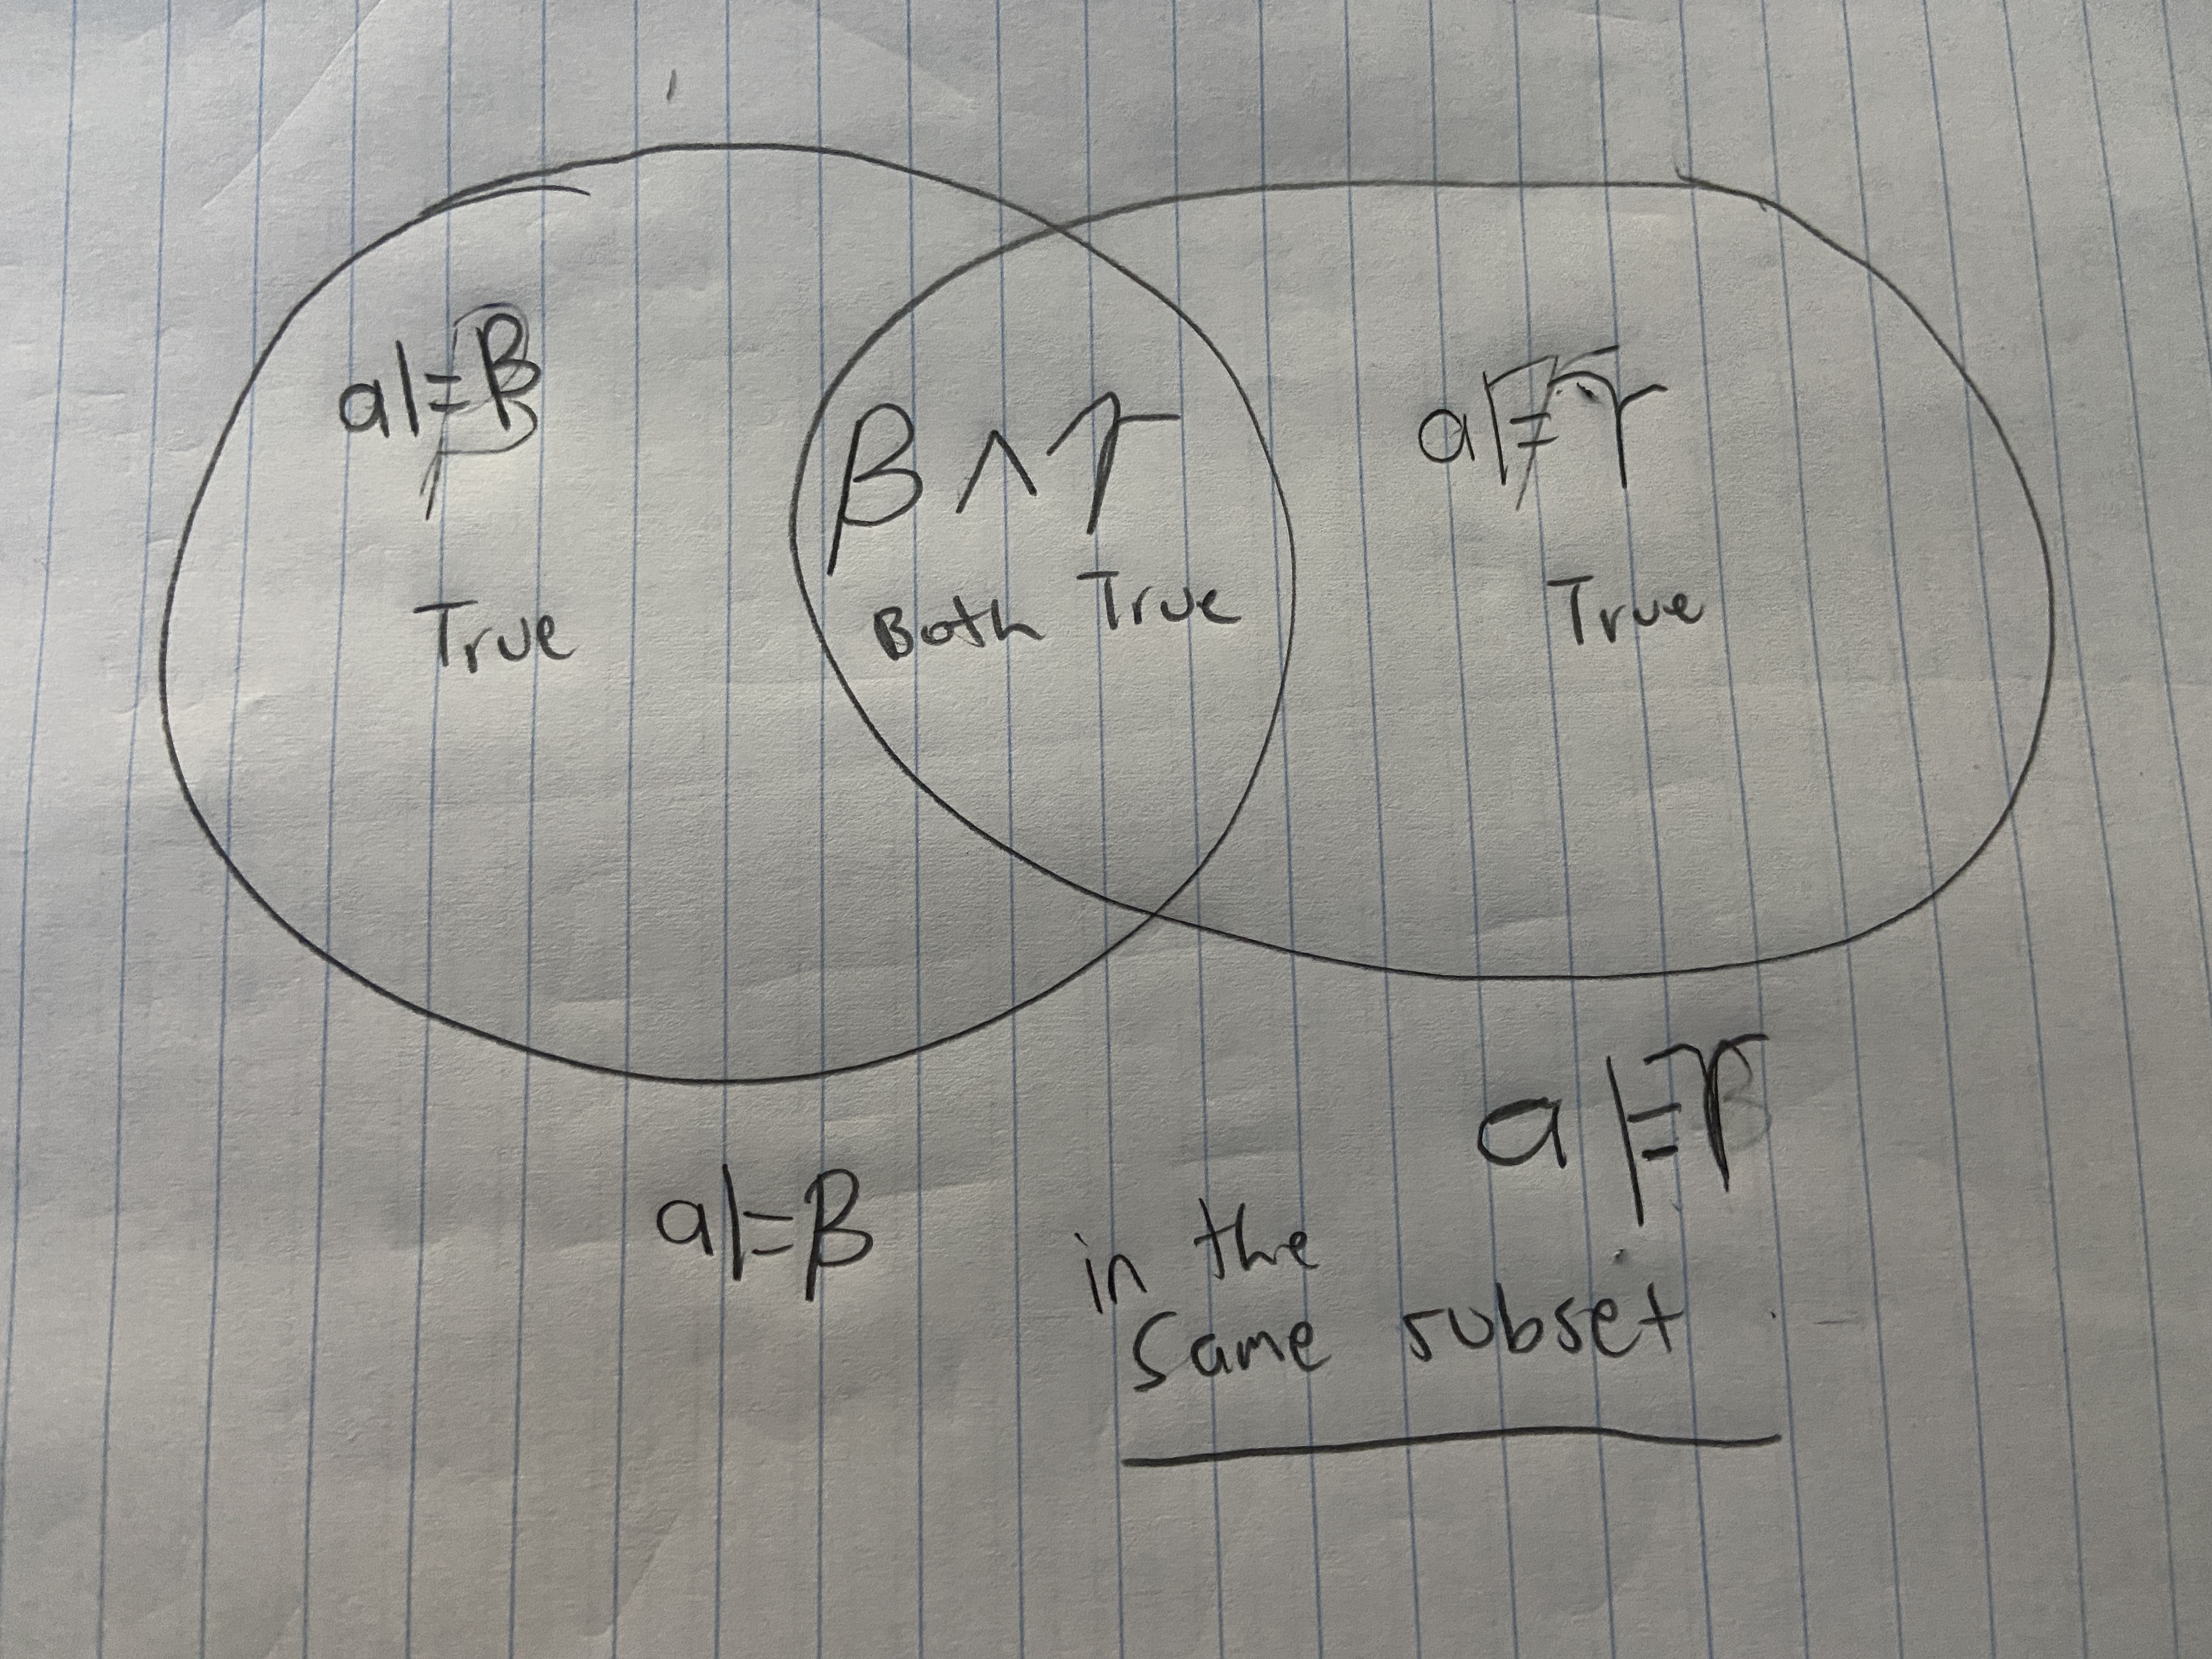 a|=β
β ∧ γ
a|=γ
True
Both True
True
a|=γ
a|=β
in the
Same subset